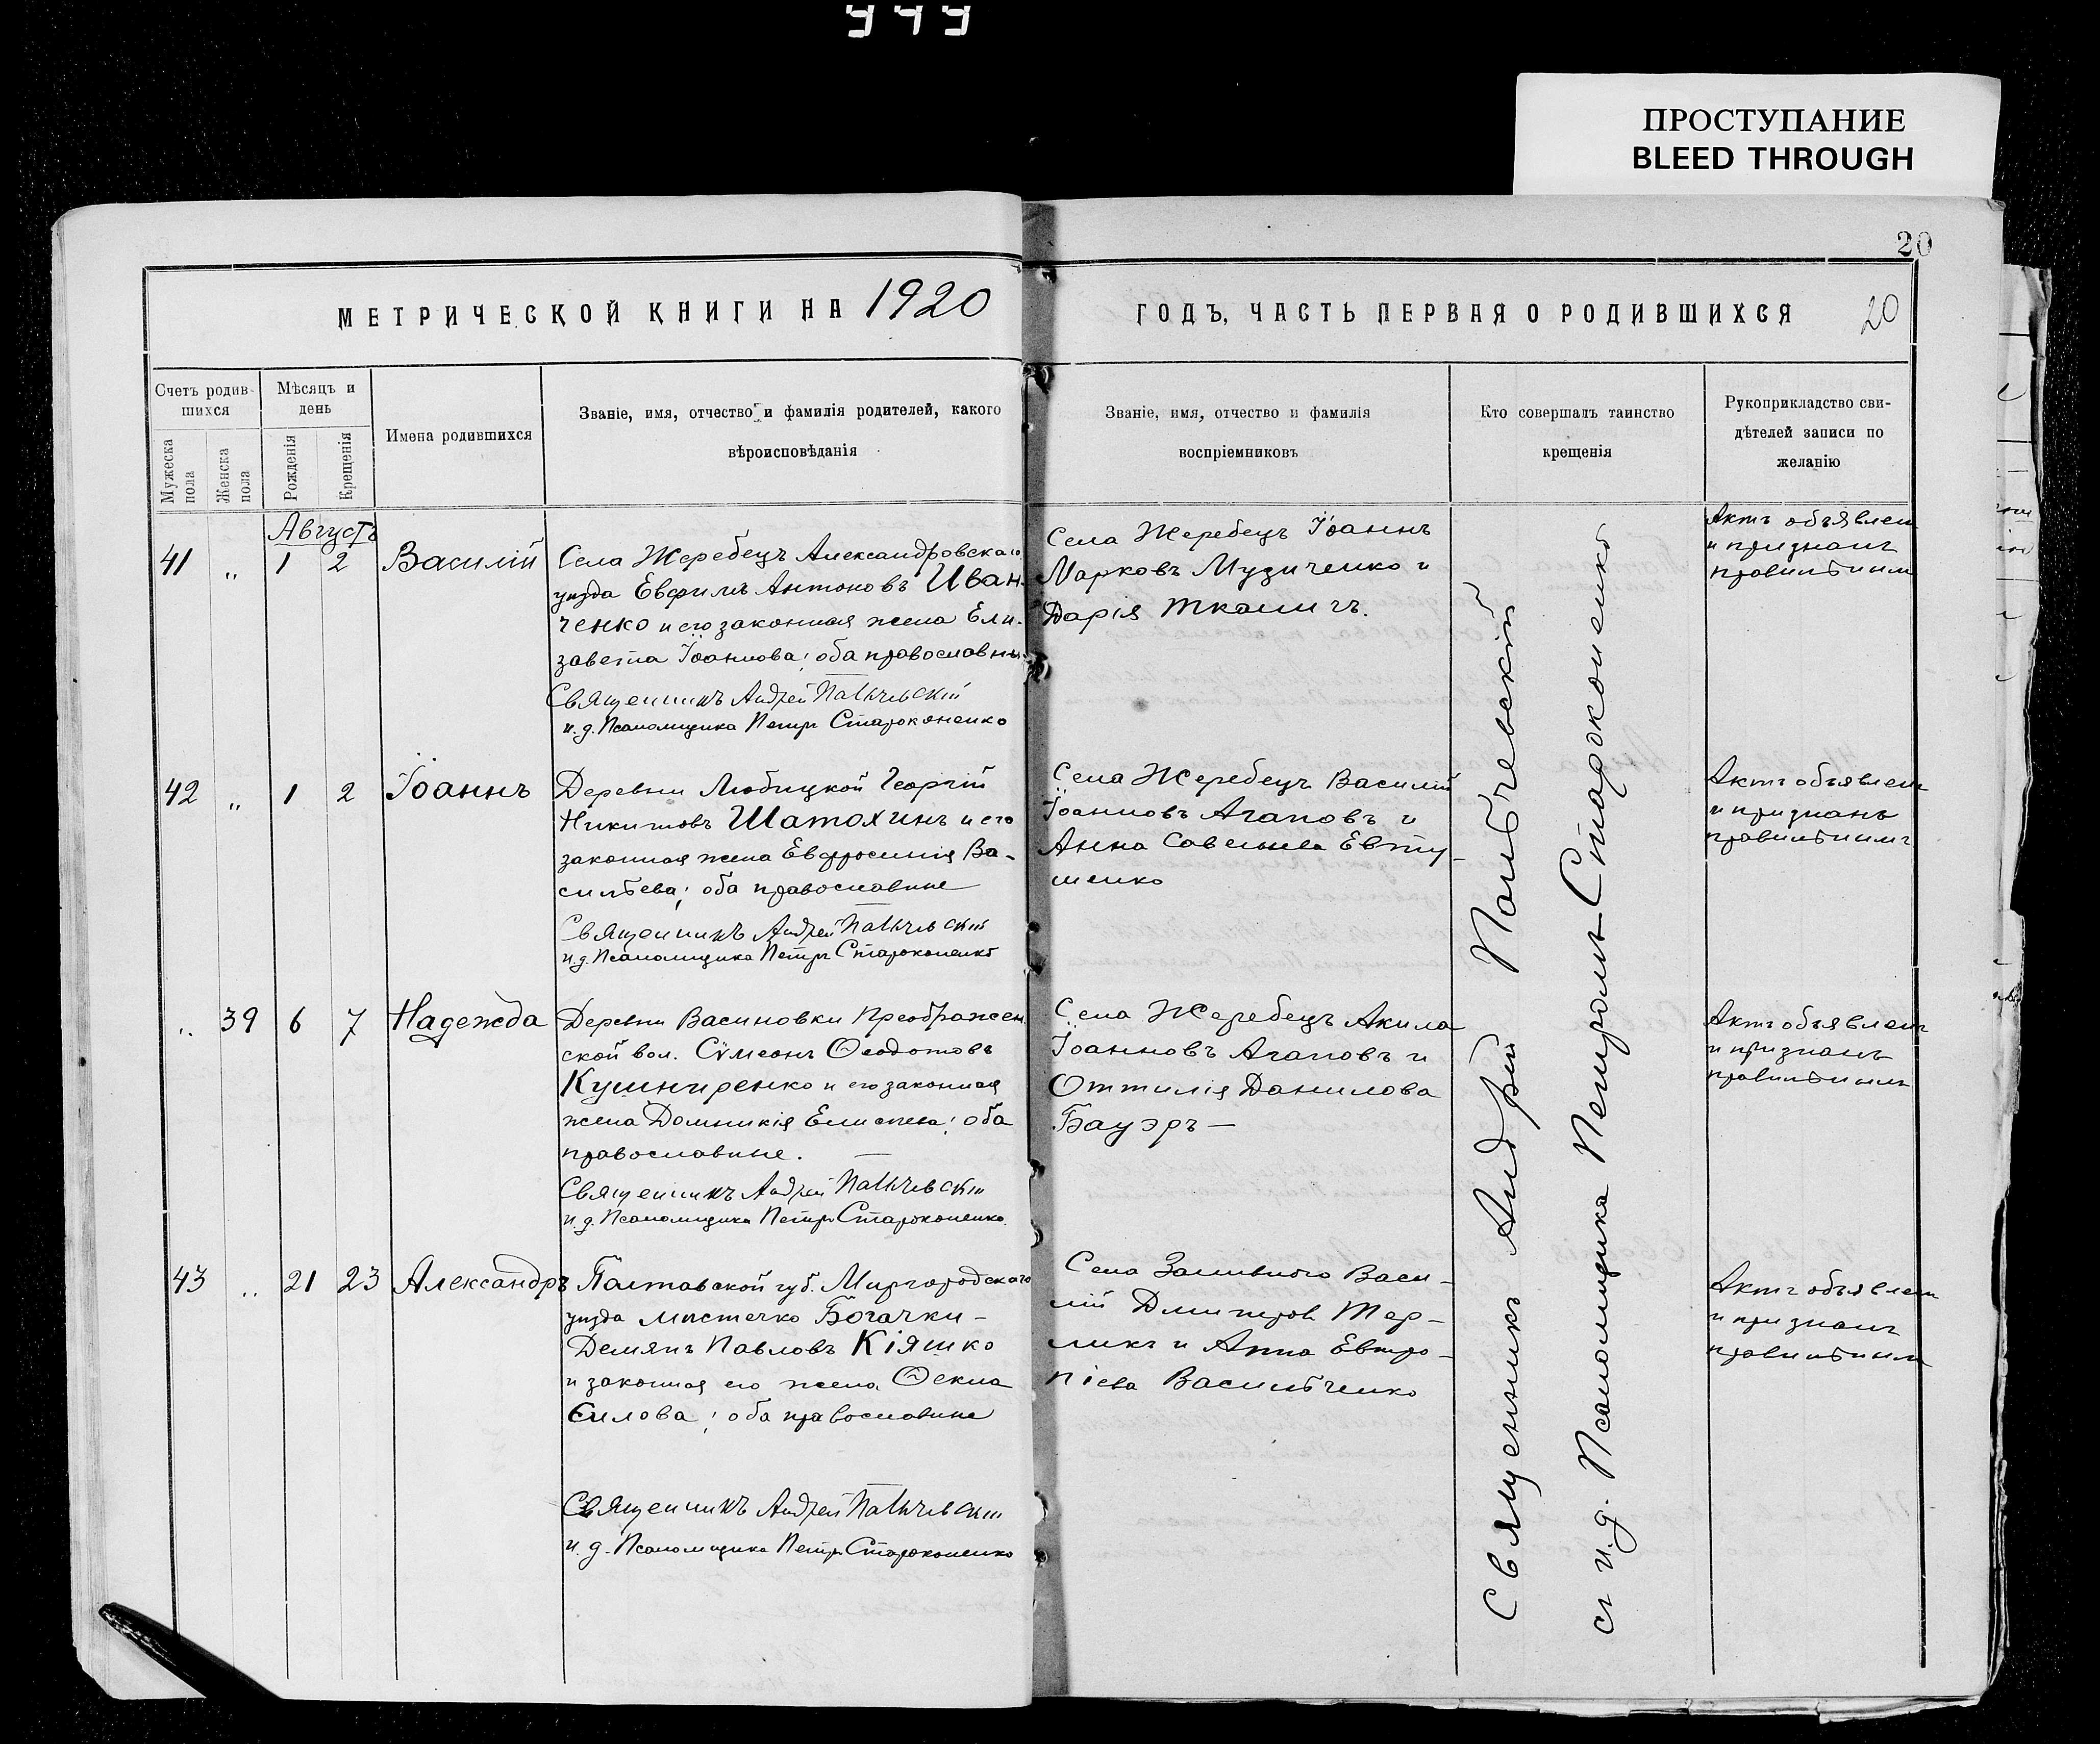 949
ПРОСТУПАНИЕ
BLEED THROUGH
20
МЕТРИЧЕСКОЙ КНИГИ НА 1920
ГОДЪ, ЧАСТЬ ПЕРВАЯ О РОДИВШИХСЯ 20
Счетъ родив-
шихся
Мужеска
пола
Женска
пола
Мѣсяцъ и
день
Рожденія
Крещенія
Имена родившихся
Званіе, имя, отчество и фамилія родителей, какого
вѣроисповѣданія
Званіе, имя, отчество и фамилія
воспріемниковъ
Кто совершалъ таинство
крещенія
Рукоприкладство сви-
дѣтелей записи по
желанію
Августъ
41 „ 1 2 Василій
Села Жеребецъ Александровскаго
уѣзда Евфимъ Антоновъ Иван-
ченко и его законная жена Ели-
завета Іоаннова; оба православны
Священникъ Андрей Пальчевскій
и. д. Псаломщика Петръ Староконенко
Села Жеребецъ Іоаннъ
Марковъ Музиченко и
Дарія Ткаличъ.
Актъ объявленъ
и признанъ
правильнымъ
42 „ 1 2 Іоаннъ
Деревни Любицкой Георгій
Никитовъ Шатохинъ и его
законная жена Евфросинія Ва-
сильева; оба православные
Священникъ Андрей Пальчевскій
и. д. Псаломщика Петръ Староконенко
Села Жеребецъ Василій
Іоанновъ Агаповъ и
Анна Савельева Евту-
шенко
Актъ объявленъ
и признанъ
правильнымъ
„ 39 6 7 Надежда
Деревни Васиновки Преображен
ской вол. Сѵмеонъ Ѳеодотовъ
Кушниренко и его законная
жена Домникія Елисеева; оба
православные.
Священникъ Андрей Пальчевскій
и. д. Псаломщика Петръ Староконенко
Села Жеребецъ Акила
Іоанновъ Агаповъ и
Оттилія Данилова
Бауэръ —
Актъ объявленъ
и признанъ
правильнымъ
43 „ 21 23 Александръ
Полтавской губ. Миргородскаго
уѣзда мѣстечко Богачки-
Демянъ Павловъ Кіяшко
и законная его жена Ѳекла
Силова; оба православные
Священникъ Андрей Пальчевскій
и. д. Псаломщика Петръ Староконенко
Села Заливного Васи-
лій Дмитровъ Тер-
ликъ и Анна Евтро-
піева Васильченко
Актъ объявленъ
и признанъ
правильнымъ
Священникъ Андрей Пальчевскій
съ и. д. Псаломщика Петромъ Староконенко